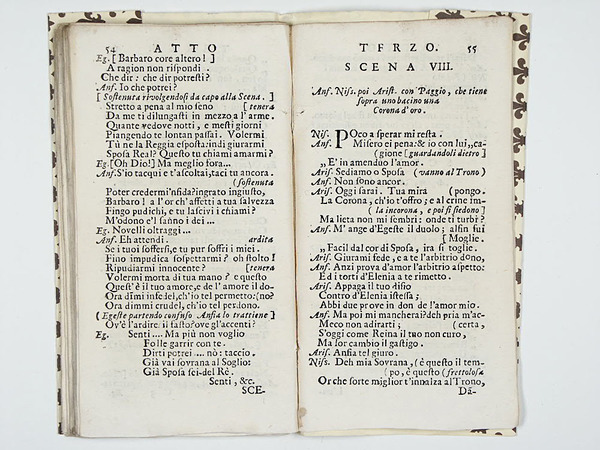 54 ATTO
Eg. [ Barbaro core altero! ]
A ragion non rispondi.
Che dir: che dir potresti?
Ans. Io che potrei?
[ Sostenuta rivolgendosi da capo alla Scena. ]
Stretto a pena al mio seno [ tenera
Da me ti dilungasti in mezzo a l'arme.
Quante vedove notti, e mesti giorni
Piangendo te lontan passai. Volermi
Tù ne la Reggia esposta: indi giurarmi
Sposa Real? Questo tu chiami amarmi?
Eg. [Oh Dio!] Ma meglio fora...
Ans. S'io tacqui e t'ascoltai, taci tu ancora.
(sostenuta
Poter credermi 'nfida? ingrato ingiusto,
Barbaro! a l'or ch'affetti a tua salvezza
Fingo pudichi, e tu lascivi i chiami?
M'odono e'l sanno i dei...
Eg. Novelli oltraggi...
Ans. Eh attendi. ardita
Se i tuoi soffersi, e tu pur soffri i miei.
Fino impudica sospettarmi? oh stolto!
Ripudiarmi innocente? [tenera
Volermi morta di tua mano? e questo
Quest' è il tuo amore, e de l'amore il do-
Ora dimmi infedel, ch'io tel permetto: (no?
Ora dimmi crudel, ch'io tel perdono.
(Egeste partendo confuso Ansia lo trattiene]
Ov'è l'ardire, il fasto? ove gl'accenti?
Eg. Senti.... Ma più non voglio
Folle garrir con te.
Dirti potrei .... nò: taccio.
Già vai sovrana al Soglio:
Già Sposa sei del Rè.
Senti, &c.
SCE-
TERZO. 55
SCENA VIII.
Ans. Nis. poi Arist. con Paggio, che tiene
sopra uno bacino una
Corona d'oro.
Nis. POco a sperar mi resta.
Ans. Misero ei pena: & io con lui „ca-
(gione [guardandoli dietro ]
„E' in amenduo l'amor.
Aris. Sediamo o Sposa (vanno al Trono)
Ans. Non sono ancor.
Aris. Oggi sarai. Tua mira (pongo.
La Corona, ch'io t'offro; e al crine im-
(la incorona, e poi si siedono ]
Ma lieta non mi sembri: onde ti turbi?
Ans. M'ange d'Egeste il duolo; alfin fui
[ Moglie.
„Facil dal cor di Sposa, ira si toglie.
Aris. Giurami fede, e a te l'arbitrio dono,
Ans. Anzi prova d'amor l'arbitrio aspetto:
Ed i torti d'Elenia a te rimetto.
Aris. Appaga il tuo disio
Contro d'Elenia istessa;
Abbi due prove in don de l'amor mio.
Ans. Ma poi mi mancherai? deh pria m'ac-
Meco non adirarti; (certa,
S'oggi come Reina il tuo non curo,
Ma for cambio il gastigo.
Aris. Ansia tel giuro.
Nis. Deh mia Sovrana, (è questo il tem-
(po, è questo (frettolosa
Or che sorte miglior t'innalza al Trono,
Da-